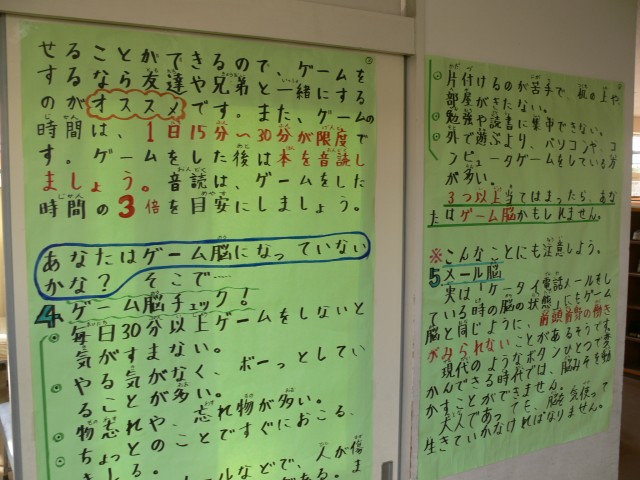 せることができるので、ゲームを
するなら友達や兄弟と一緒にする
のがオススメです。また、ゲームの
時間は、1日15分〜30分が限度で
す。ゲームをした後は本を音読し
ましょう。音読は、ゲームをした
時間の3倍を目安にしましょう。
あなたはゲーム脳になっていない
かな？ そこで…
4 ゲーム脳チェック！
毎日30分以上ゲームをしないと
気がすまない。
やる気がなく、ボーっとしてい
ることが多い。
物忘れや、忘れ物が多い。
ちょっとのことですぐにおこる、
片付けるのが苦手で、机の上や、
部屋がきたない。
勉強や読書に集中できない。
外で遊ぶより、パソコンや、コ
ンピュータゲームをしている方
が多い。
3つ以上当てはまったら、あな
たはゲーム脳かもしれません。
※こんなことにも注意しよう。
5 メール脳
実はケータイ電話メールをし
ている時の脳の状態にもゲーム
脳と同じように、前頭前野の働き
がみられないことがあるそうです。
現代のようなボタンひとつで
かんできる時代では、脳みそを動
かすことができません。
大人であっても、脳を気使って
生きていかなければなりません。